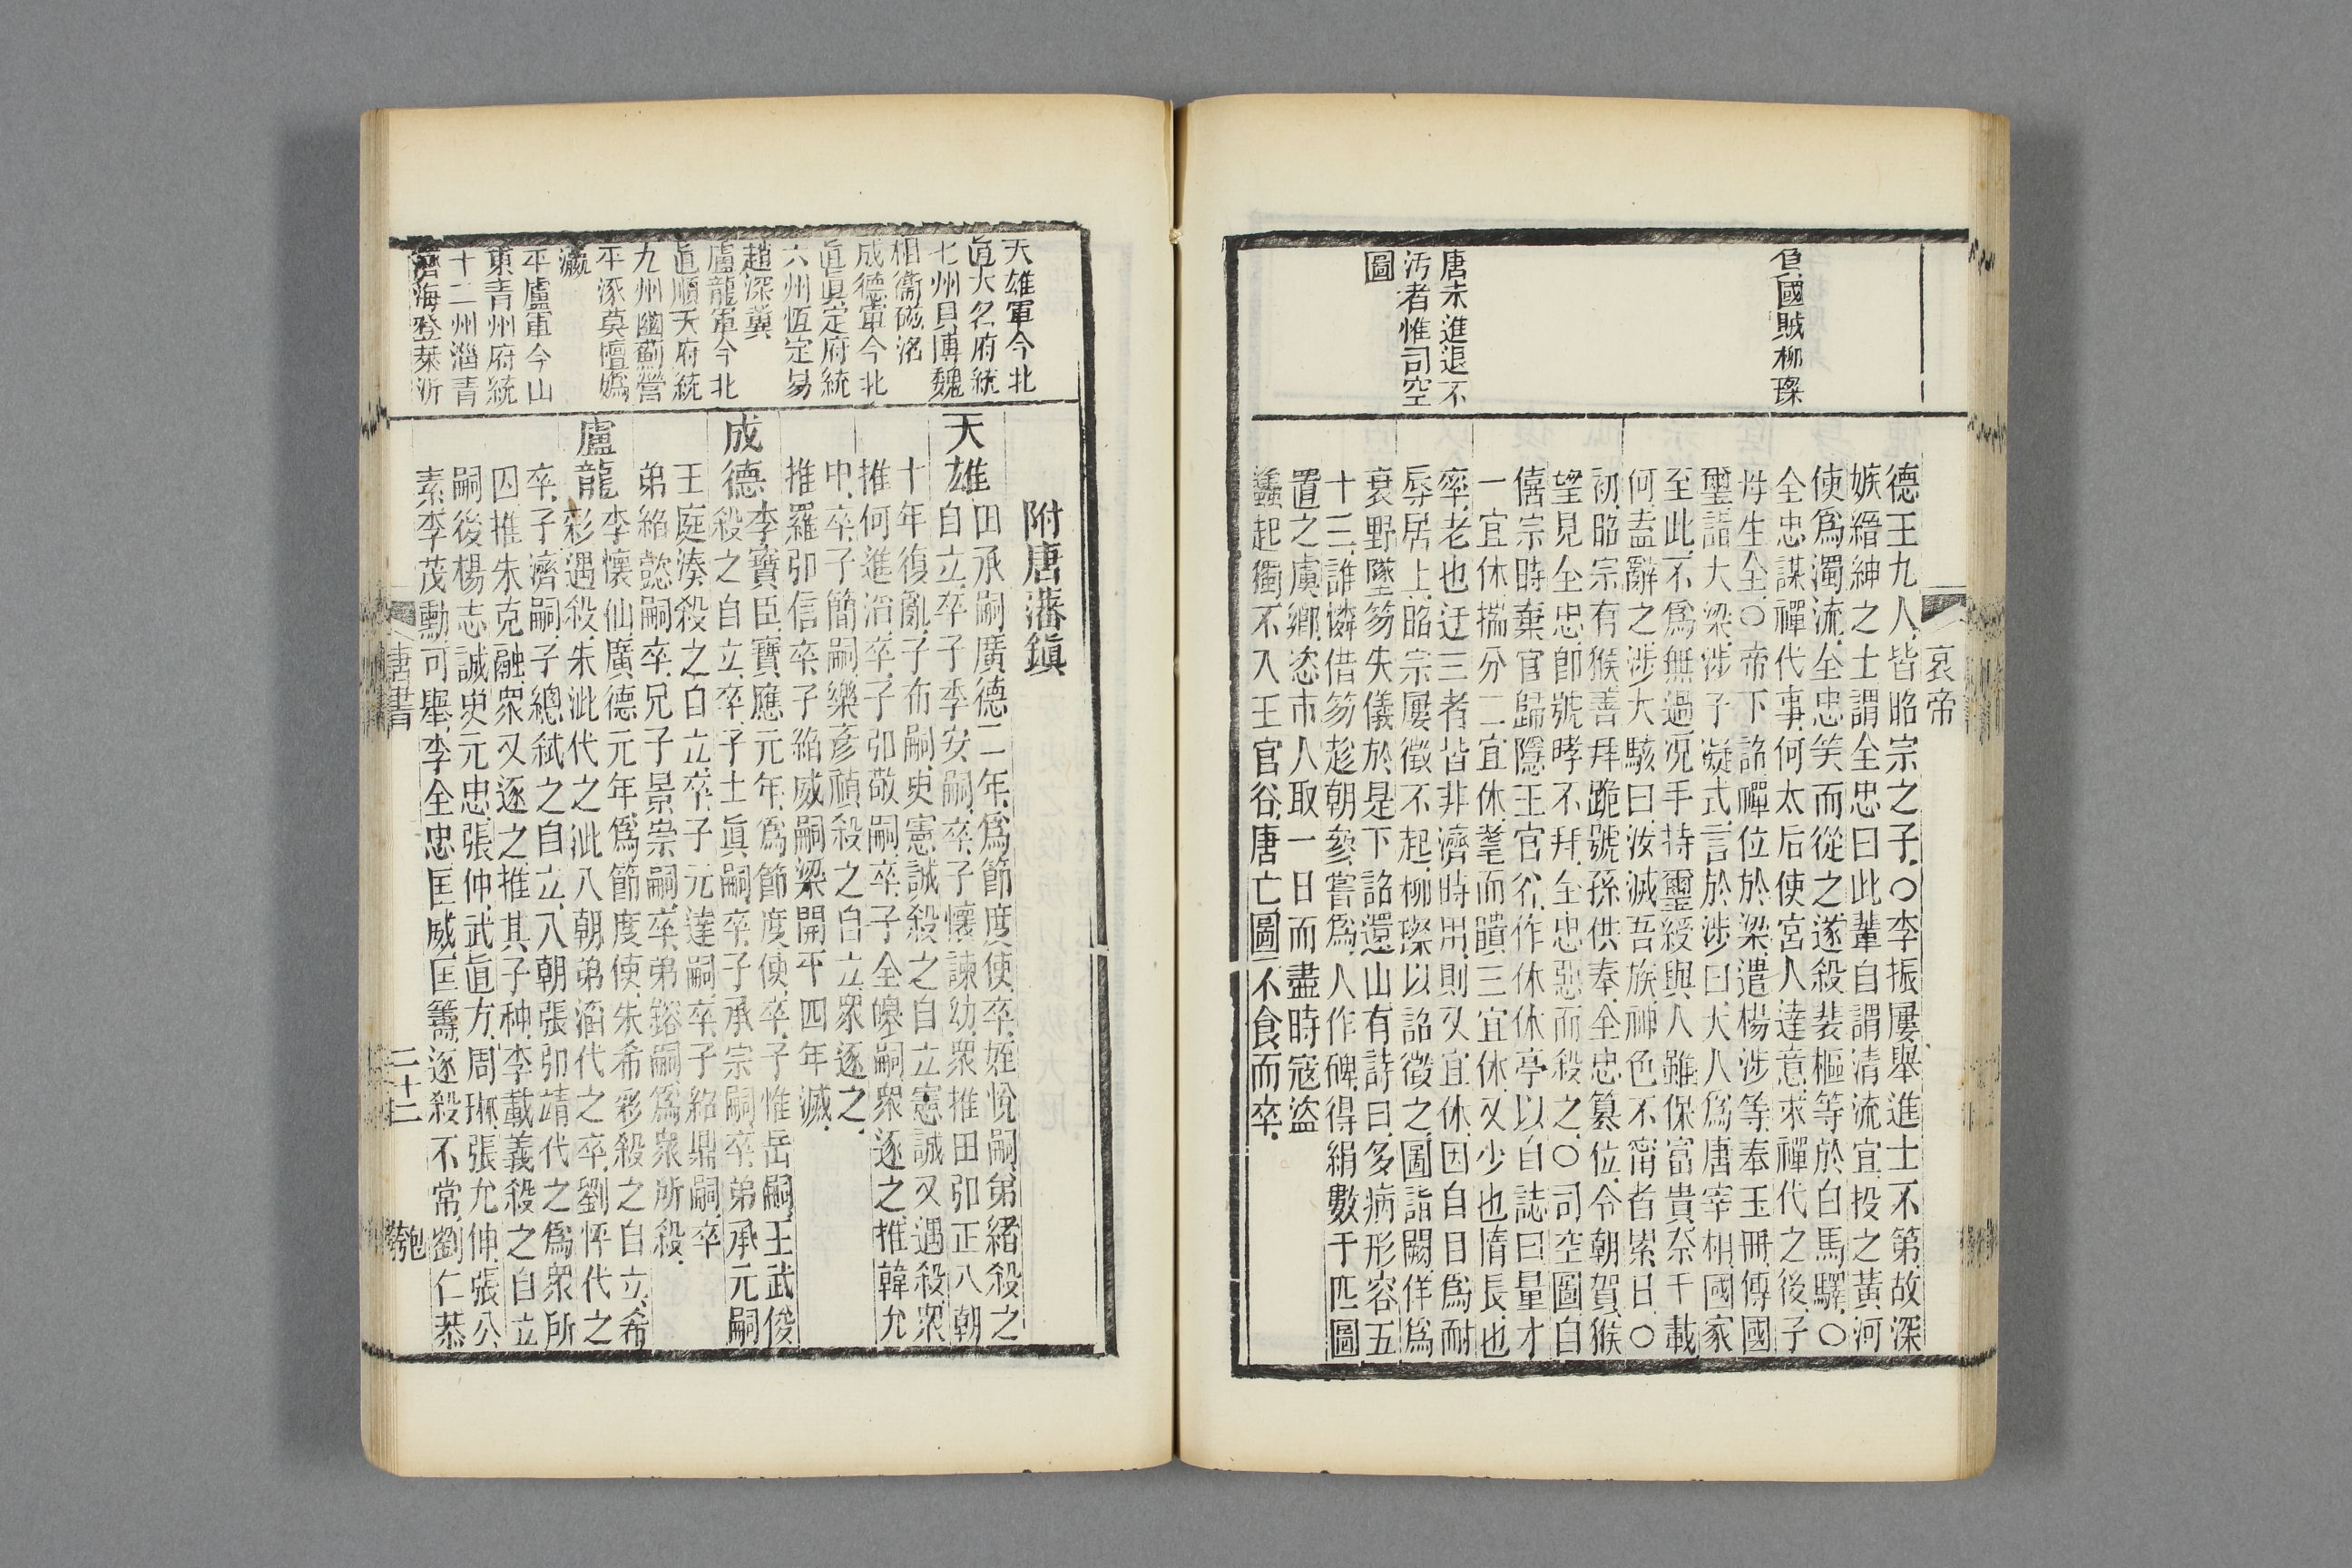 哀帝
負國賊柳璨
唐末進退不
汚者惟司空
圖
德王九人皆昭宗之子○李振屢舉進士不第故深
嫉縉紳之士謂全忠曰此輩自謂清流宜投之黃河
使爲濁流全忠笑而從之遂殺裴樞等於白馬驛○
全忠謀禪代事何太后使宮人達意求禪代之後子
母生全○帝下詔禪位於梁遣楊涉等奉玉冊傳國
璽詣大梁涉子凝式言於涉曰大人爲唐宰相國家
至此不爲無過況手持璽綬與人雖保富貴奈千載
何盍辭之涉大駭曰汝滅吾族神色不甯者累日○
初昭宗有猴善拜跪號孫供奉全忠簒位令朝賀猴
望見全忠卽號哮不拜全忠惡而殺之○司空圖自
僖宗時棄官歸隱王官谷作休休亭以自誌曰量才
一宜休揣分二宜休耄而聵三宜休又少也惰長也
率老也迂三者皆非濟時用則又宜休因自目爲耐
辱居上昭宗屢徵不起柳璨以詔徵之圖詣闕佯爲
衰野墜笏失儀於是下詔還山有詩曰多病形容五
十三誰憐借笏趁朝參嘗爲人作碑得絹數千匹圖
置之虞鄉恣市人取一日而盡時寇盜
蠭起獨不入王官谷唐亡圖不食而卒
天雄軍今北
眞大名府統
七州貝博魏
相衞磁洺
成德軍今北
眞眞定府統
六州恆定易
趙深冀
盧龍軍今北
眞順天府統
九州幽薊營
平涿莫檀嬀
瀛
平盧軍今山
東青州府統
十二州淄青
濟海登萊沂
附唐藩鎭
田承嗣廣德二年爲節度使卒姪悅嗣弟緒殺之
天雄自立卒子季安嗣卒子懷諫幼衆推田卽正入朝
十年復亂子布嗣史憲誠殺之自立憲誠又遇殺衆
推何進滔卒子卽敬嗣卒子全皞嗣衆逐之推韓允
中卒子簡嗣樂彥禎殺之自立衆逐之
推羅卽信卒子紹威嗣梁開平四年滅
李寶臣寶應元年爲節度使卒子惟岳嗣王武俊
成德殺之自立卒子士眞嗣卒子承宗嗣卒弟承元嗣
王庭湊殺之自立卒子元達嗣卒子紹鼎嗣卒
弟紹懿嗣卒兄子景崇嗣卒弟鎔嗣爲衆所殺
李懷仙廣德元年爲節度使朱希彩殺之自立希
盧龍彩遇殺朱泚代之泚入朝弟滔代之卒劉怦代之
卒子濟嗣子總弑之自立入朝張卽靖代之爲衆所
囚推朱克融衆又逐之推其子种李載義殺之自立
嗣後楊志誠史元忠張仲武直方周琳張允伸張公
素李茂勳可舉李全忠匡威匡籌逐殺不常劉仁恭
唐書
二十二